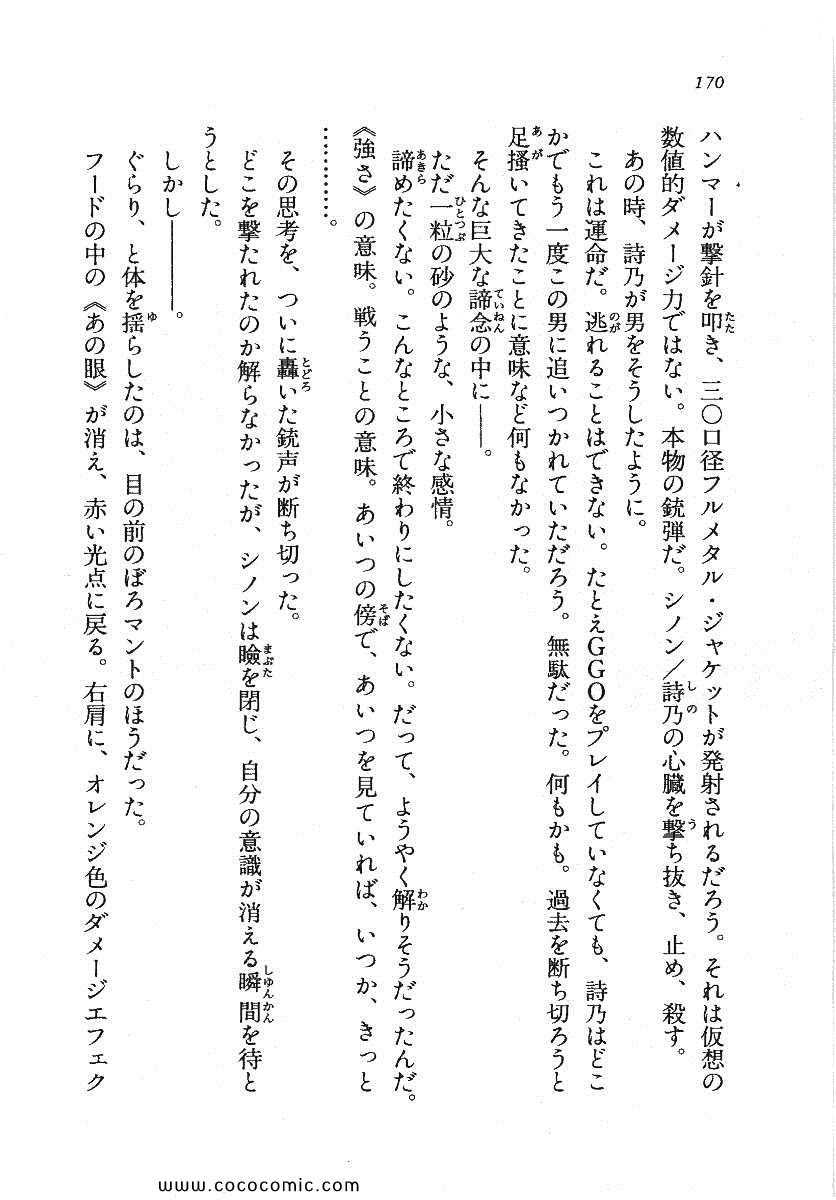 170
ハンマーが撃針を叩き、三〇口径フルメタル・ジャケットが発射されるだろう。それは仮想の
数値的ダメージ力ではない。本物の銃弾だ。シノン／詩乃の心臓を撃ち抜き、止め、殺す。
あの時、詩乃が男をそうしたように。
これは運命だ。逃れることはできない。たとえGGOをプレイしていなくても、詩乃はどこ
かでもう一度この男に追いつかれていただろう。無駄だった。何もかも。過去を断ち切ろうと
足掻いてきたことに意味など何もなかった。
そんな巨大な諦念の中に――。
ただ一粒の砂のような、小さな感情。
諦めたくない。こんなところで終わりにしたくない。だって、ようやく解りそうだったんだ。
《強さ》の意味。戦うことの意味。あいつの傍で、あいつを見ていれば、いつか、きっと
…………。
その思考を、ついに轟いた銃声が断ち切った。
どこを撃たれたのか解らなかったが、シノンは瞼を閉じ、自分の意識が消える瞬間を待と
うとした。
しかし――――。
ぐらり、と体を揺らしたのは、目の前のぼろマントのほうだった。
フードの中の《あの眼》が消え、赤い光点に戻る。右肩に、オレンジ色のダメージエフェク
www.cococomic.com